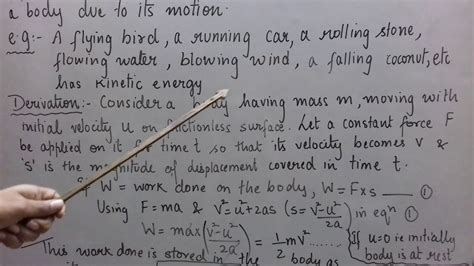 a body due to its motion.
e.g:- A flying bird, a running car, a rolling stone,
flowing water, blowing wind, a falling coconut, etc
has Kinetic energy
Derivation:- Consider a body having mass m, moving with
initial velocity u on frictionless surface. Let a constant force F
be applied on it for time t so that its velocity becomes v &
's' is the magnitude of displacement covered in time t.
If W = work done on the body, W = F x s ___ ①
Using F = ma & v² = u² + 2as (s = v²-u²/2a) in eqⁿ ①
W = max(v²-u²/2a) = ½mv² ...... { If u=0 i.e initially
body is at rest
This work done is stored in the body as